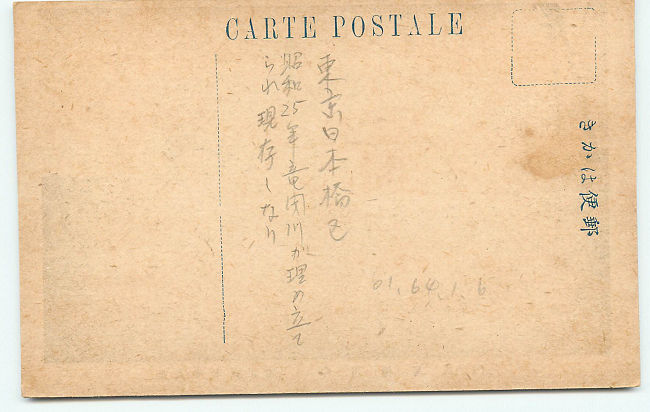 CARTE POSTALE
きかは便郵
東京日本橋区
昭和25年竜閑川が埋め立て
られ現存しない
61.64.1.6